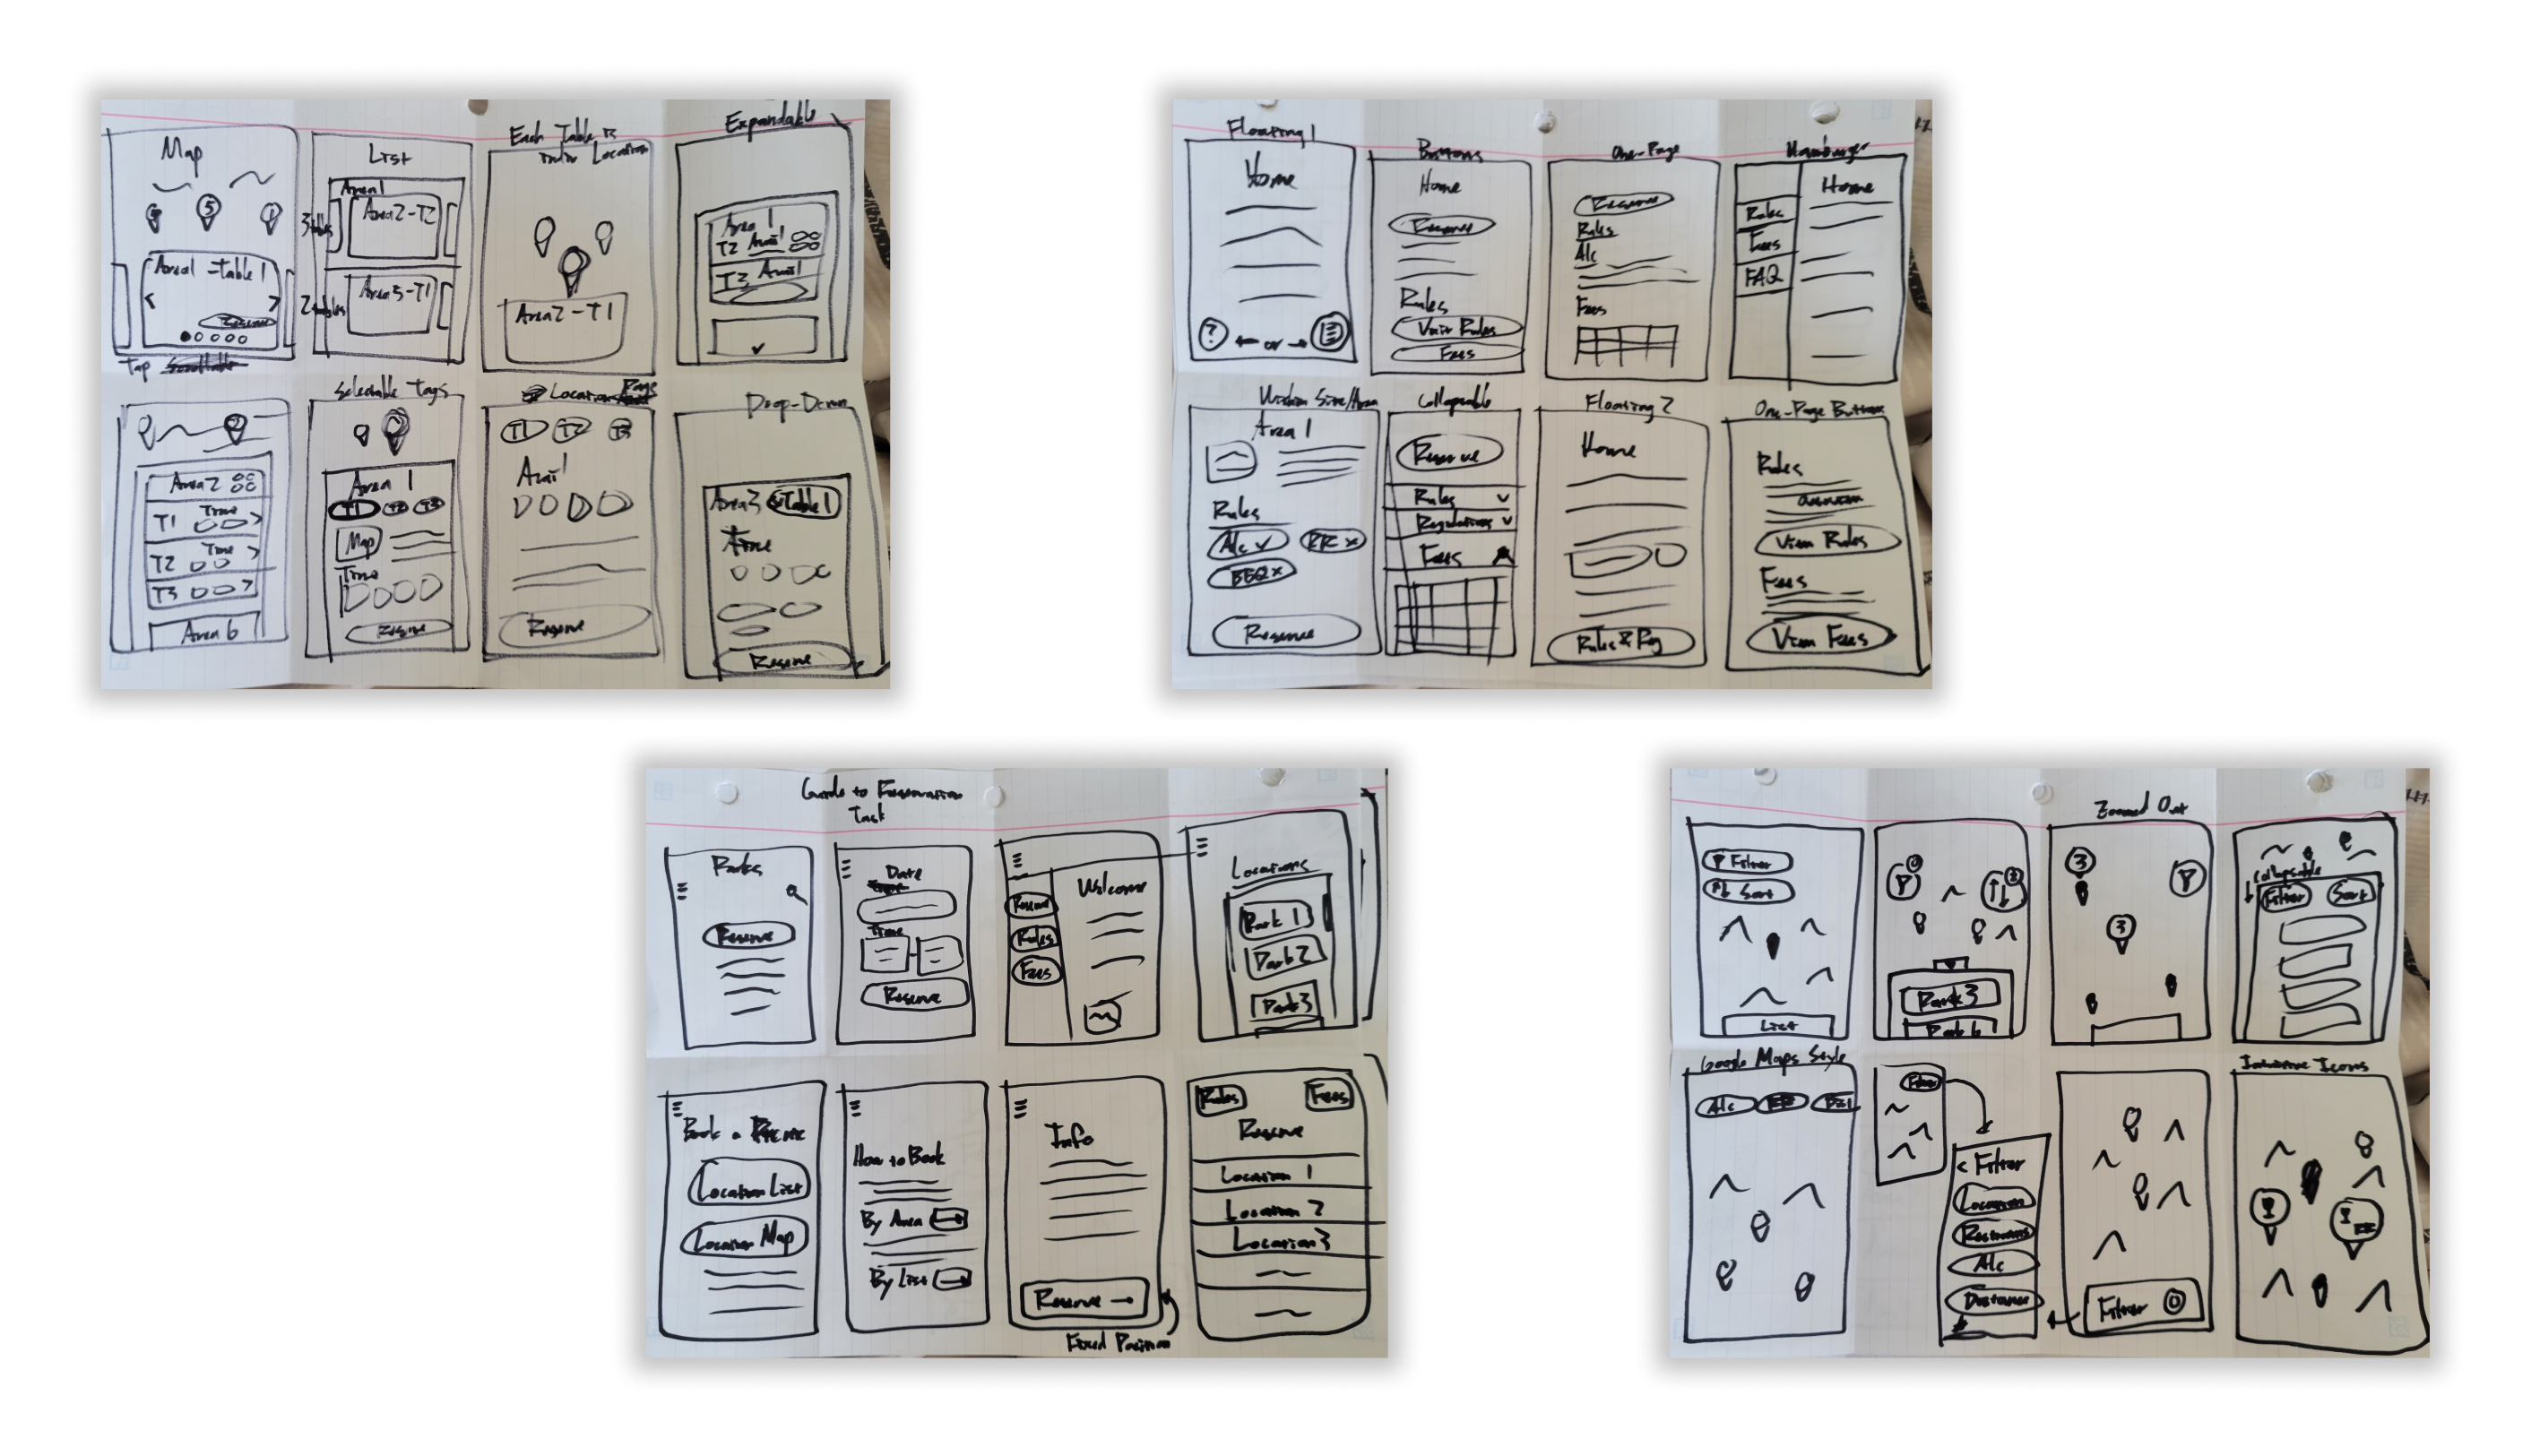 Map
5
Area 1 - Table 1
<
>
Reserve
Tap
List
Area 1
3 tables
Area 2 - T2
2 tables
Area 5 - T1
Each Table is
Location
Area 2 - T1
Expandable
Area 1
T2 Avail
T3 Avail
2
Area 2
T1 Time >
T2 Time >
T3 >
Area 6
Selectable Tags
Area 1
T1 T2 T3
Map
Time
Reserve
Location Page
T1 T2 T3
Avail
Reserve
Drop-Down
Area 3 Table 1
Time
Reserve
Floating 1
Home
? ← or →
Buttons
Home
Reserve
Rules
View Rules
Fees
One-Page
Reserve
Rules
Alc
Fees
Hamburger
Home
Rules
Fees
FAQ
Within Site/Area
Area 1
Rules
Alc ✓ RR x
BBQ x
Reserve
Collapsable
Reserve
Rules
Regulations
Fees
Floating 2
Home
Rules & Reg
One-Page Buttons
Rules
View Rules
Fees
View Fees
Guide to Reservation
Task
Parks
Reserve
Date
Time
Reserve
Welcome
Reserve
Rules
Fees
Locations
Park 1
Park 2
Park 3
Book a Picnic
Location List
Location Map
How to Book
By Area →
By List →
Info
Reserve →
Fixed Position
Rules Fees
Reserve
Location 1
Location 2
Location 3
Filter
↑↓ Sort
List
↑↓
Park 3
Park 6
Zoomed Out
3
3
Collapsable
↓ Filter Sort
Google Maps Style
Alc
Filter
< Filter
Location
Restrooms
Alc
Distance
Filter 0
Icons